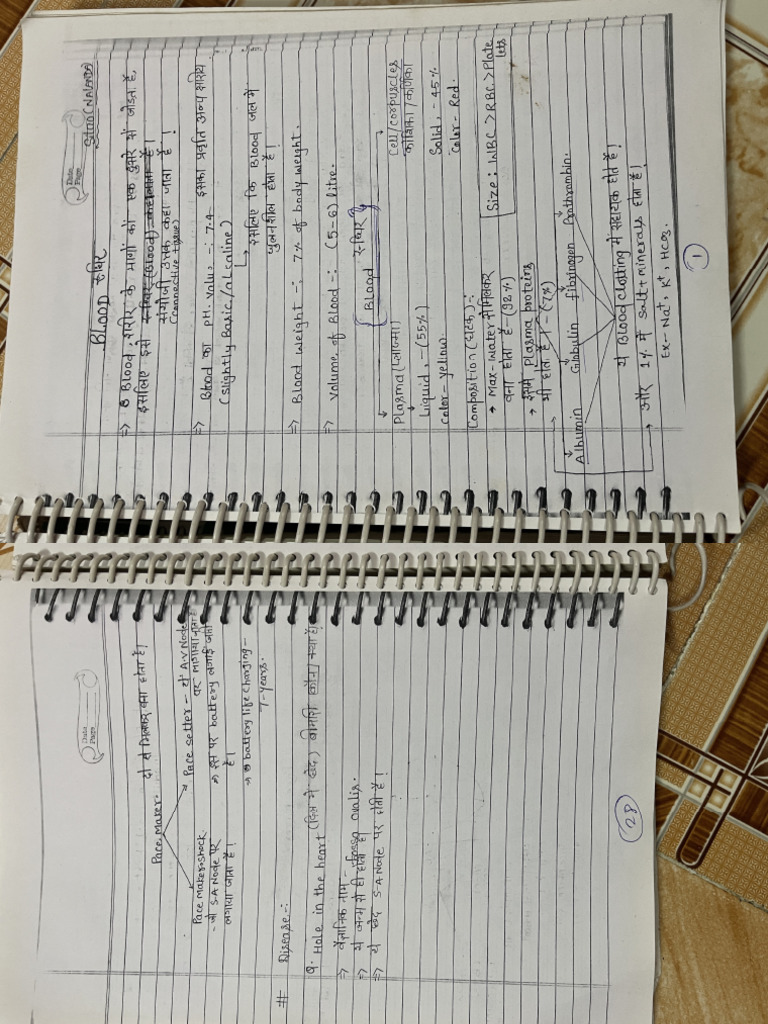 Date
Page
BLOOD रुधिर
⇒ Blood, शरीर के भागों को एक दुसरे से जोड़ता है,
इसलिए इसे रुधिर (Blood) कहलाता है।
संयोजी उत्तक कहा जाता है।
(Connective tissue)
⇒ Blood का pH. value -: 7.4 - इसका प्रवृति अन्य
(slightly Basic/alcaline)
↳ इसलिए कि Blood जल में
घुलनशील होता है।
⇒ Blood Weight -: 7% of body weight.
⇒ Volume of Blood -: (5-6) litre.
Blood रुधिर
Plasma (प्लाज्मा) Cell/corpuscles
कोशिका/कणिका
Liquid, - (55%) Solid, - 45%
Color - Yellow. Color - Red.
Composition (घटक) :-
→ Max-Water से मिलकर Size: WBC > RBC > Plate
lets
बना होता है - (92%)
→ इसमें Plasma proteins
भी होता है। - (7%)
Albumin Globulin fibrinogen Prothrombin.
ये Blood clotting में सहायक होते है।
→ और 1% में salt + minerals होता है।
Ex:- Na⁺, K⁺, HCO₃.
1
Date
Page
दो से मिलकर बना होता है।
Pace Maker.
Pace maker shock Pace Setter - यो A.V Node
- जो S.A Node पर पर लगाया जाता है
लगाया जाता है। ⇒ इस पर battery लगाई जाती
है।
→ battery life charging -
7-years.
# Disease -:
Q. Hole in the heart (दिल में छेद) बीमारी कौन/क्या है।
⇒ वैज्ञानिक नाम - fossa ovalis.
⇒ ये जन्म से ही होता है।
⇒ ये छेद S-A Node पर होती है।
28